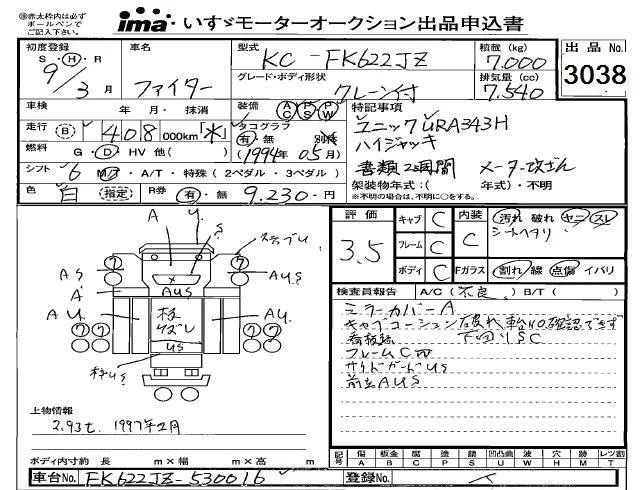 ※赤太枠内は必ず
ボールペンで
ご記入下さい。
ima いすゞモーターオークション出品申込書
初度登録 S・H・R 9/3月
車名 ファイター
型式 KC-FK622JZ
グレード・ボディ形状 クレーン付
積載(kg) 7.000
排気量(cc) 7.540
出品No. 3038
車検 年・月・抹消
装備 AC PS PW
走行 (B) 408,000km
タコグラフ 有・無・別積
(1994年05月)
燃料 G・D・HV 他( )
シフト 6 MT・A/T・特殊(2ペダル・3ペダル)
色 白 (指定)
R券 有・無 9.230-円
特記事項
ユニックURA343H
ハイジャッキ
書類2週間 メーター改ざん
架装物年式:( 年式)・不明
※不明の場合は、不明に○をする。
評価 3.5
キャブ C
フレーム C
ボディ C
内装 C
汚れ 破れ ヤニ スレ
シートヘタリ
Fガラス 割れ 線 点傷 イバリ
検査員報告 A/C(不良) B/T( )
ミラーカバーA
フレームC
サイドガードUS
前立AUS
A U. S
AS AUS
A AUS
AU. AU.
US
上物情報
2.93t. 1997年2月
ボディ内寸約 長 m×幅 m×高 m
記号 傷A 板金B 腐C 塗P 錆S 凹凸曲U 波W 穴H 跡M レンズ割T
車台No. FK622JZ-530016
登録No.